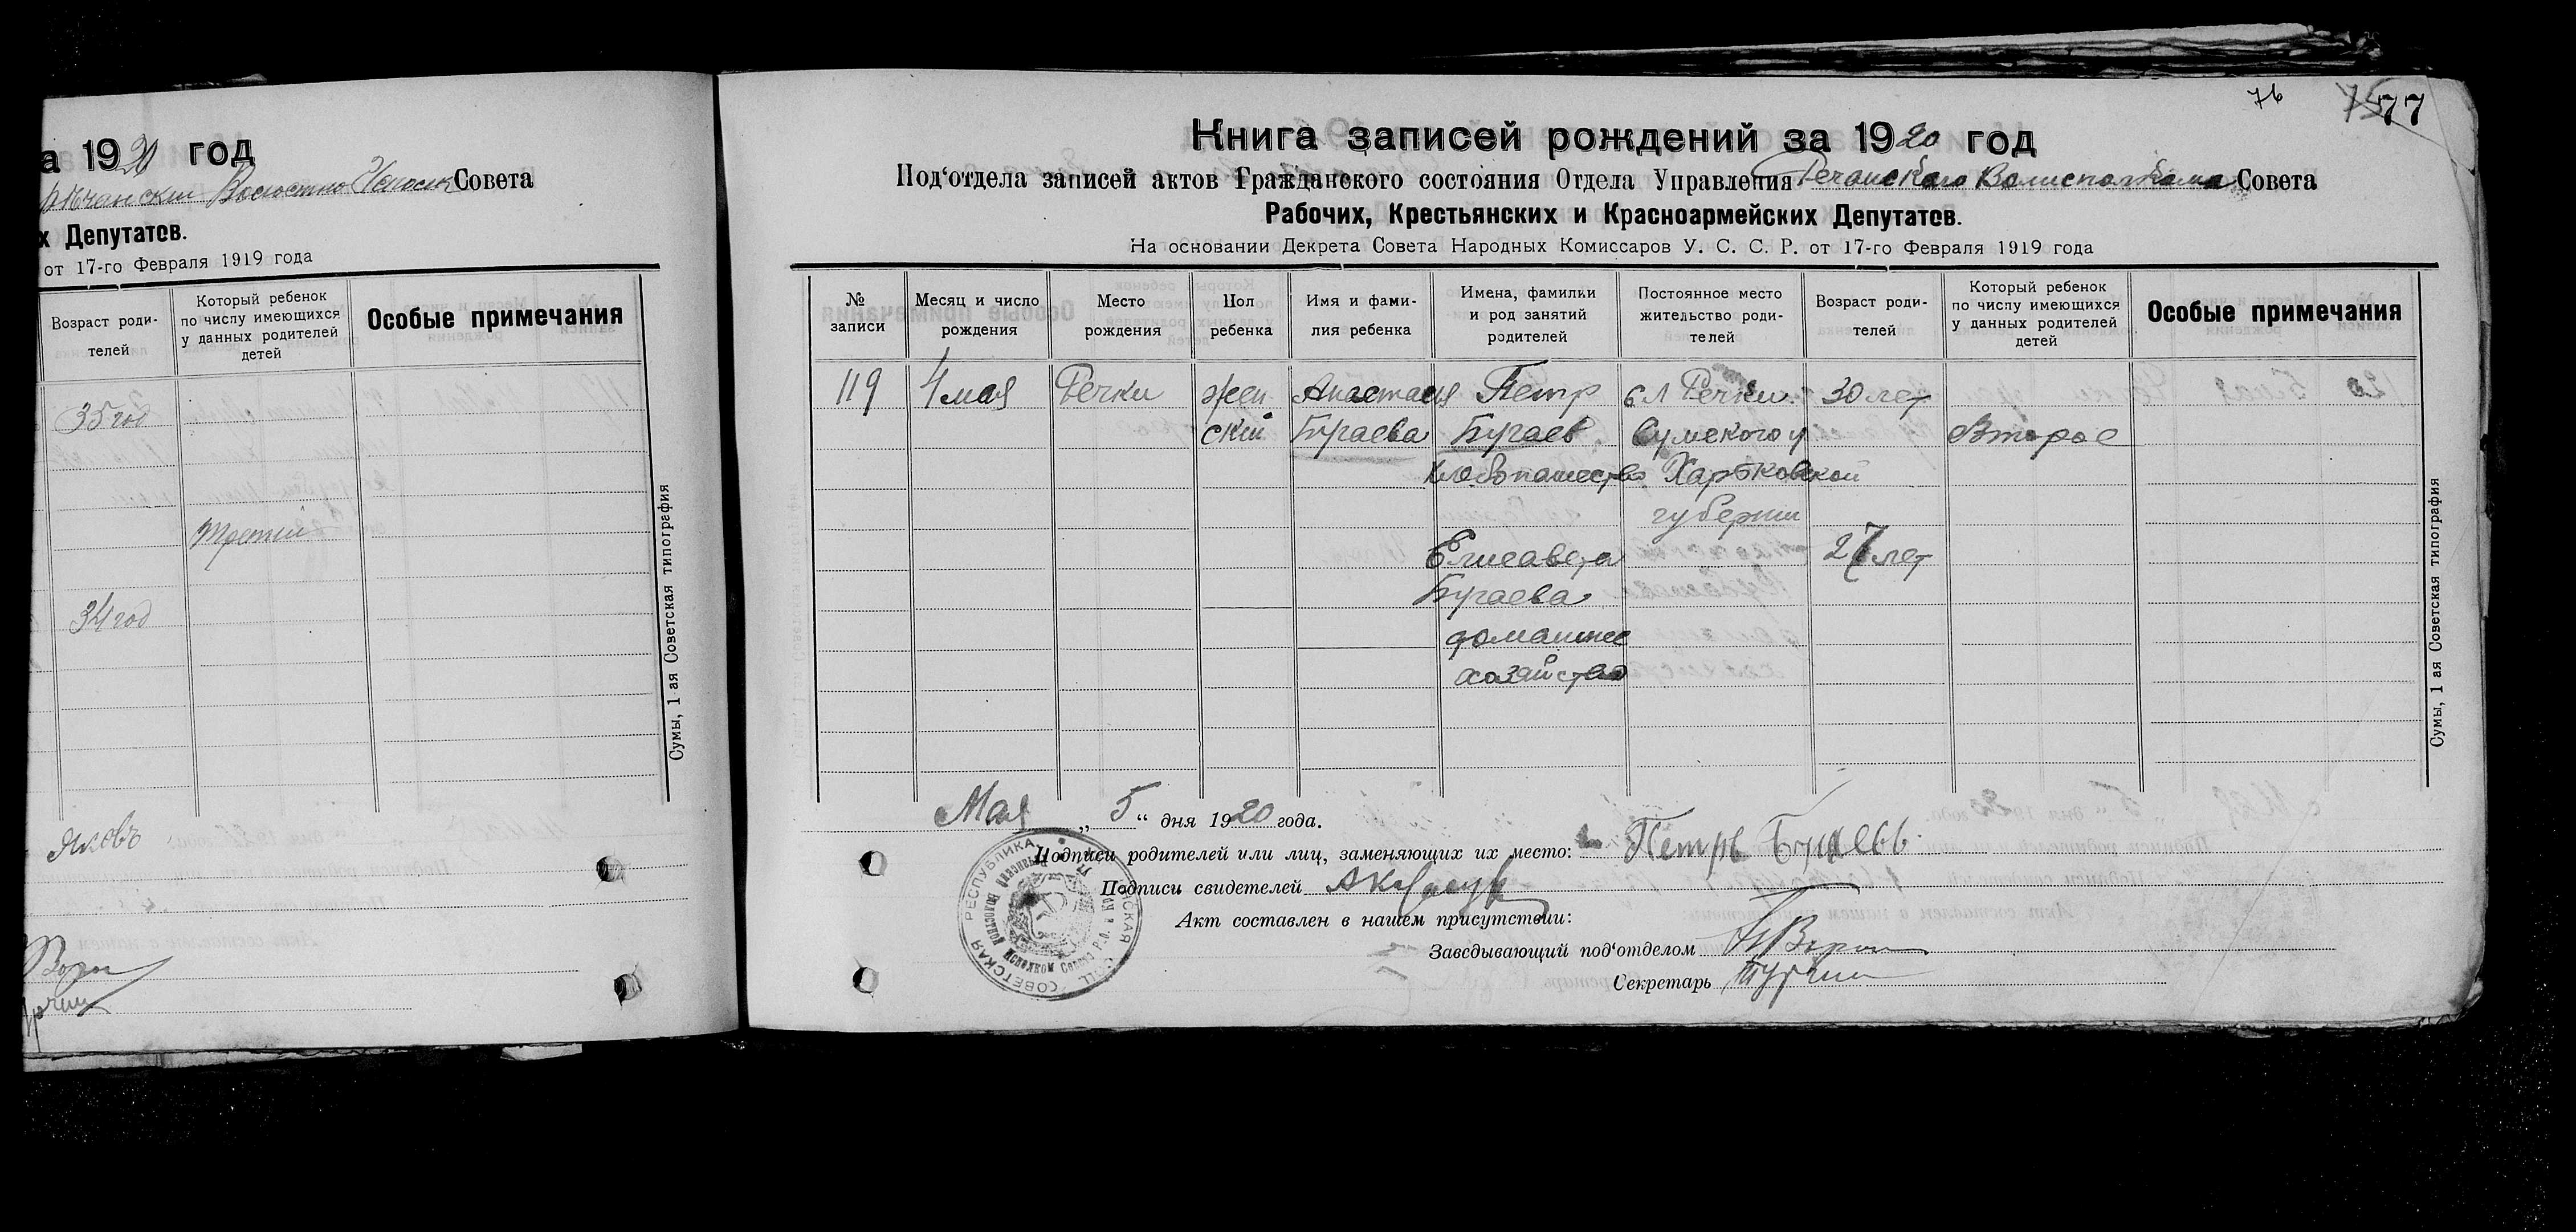 а 1920 год
Совета
х Депутатов.
от 17-го Февраля 1919 года
Возраст роди-
телей
Который ребенок
по числу имеющихся
у данных родителей
детей
Особые примечания
35 год
третий
34 год
Яковъ
Сумы, 1 ая Советская типография
76
77
Книга записей рождений за 1920 год
Под‘отдела записей актов Гражданского состояния Отдела Управления Речанского Волисполкома Совета
Рабочих, Крестьянских и Красноармейских Депутатов.
На основании Декрета Совета Народных Комиссаров У. С. С. Р. от 17-го Февраля 1919 года
№
записи
Месяц и число
рождения
Место
рождения
Пол
ребенка
Имя и фами-
лия ребенка
Имена, фамилии
и род занятий
родителей
Постоянное место
жительство роди-
телей
Возраст роди-
телей
Который ребенок
по числу имеющихся
у данных родителей
детей
Особые примечания
119
4 мая
Речки
жен
ский
Анастасия
Бугаева
Петр
Бугаев
хлебопашество
Елисавета
Бугаева
домашнее
хозяйство
сл Речки
Сумского у
Харьковской
губернии
30 лет
27 лет
Второе
Мая „ 5 “ дня 1920 года.
Подписи родителей или лиц, заменяющих их место: Петръ
Подписи свидетелей
Акт составлен в нашем присутствии:
Заведывающий под‘отделом
Секретарь
Сумы, 1 ая Советская типография